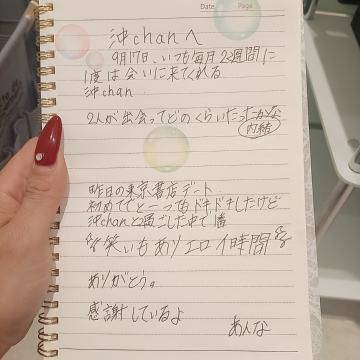 Date
Page
沖chanへ
9月17日、いつも毎月2週間に
1度は会いに来てくれる
沖chan
2人が出会ってどのくらいたったかな
内緒
昨日の東京書店デート
初めてで とってもドキドキしたけど
沖chanと過ごした中で1番
笑いもありエロイ時間
ありがとう。
感謝しているよ
あんな